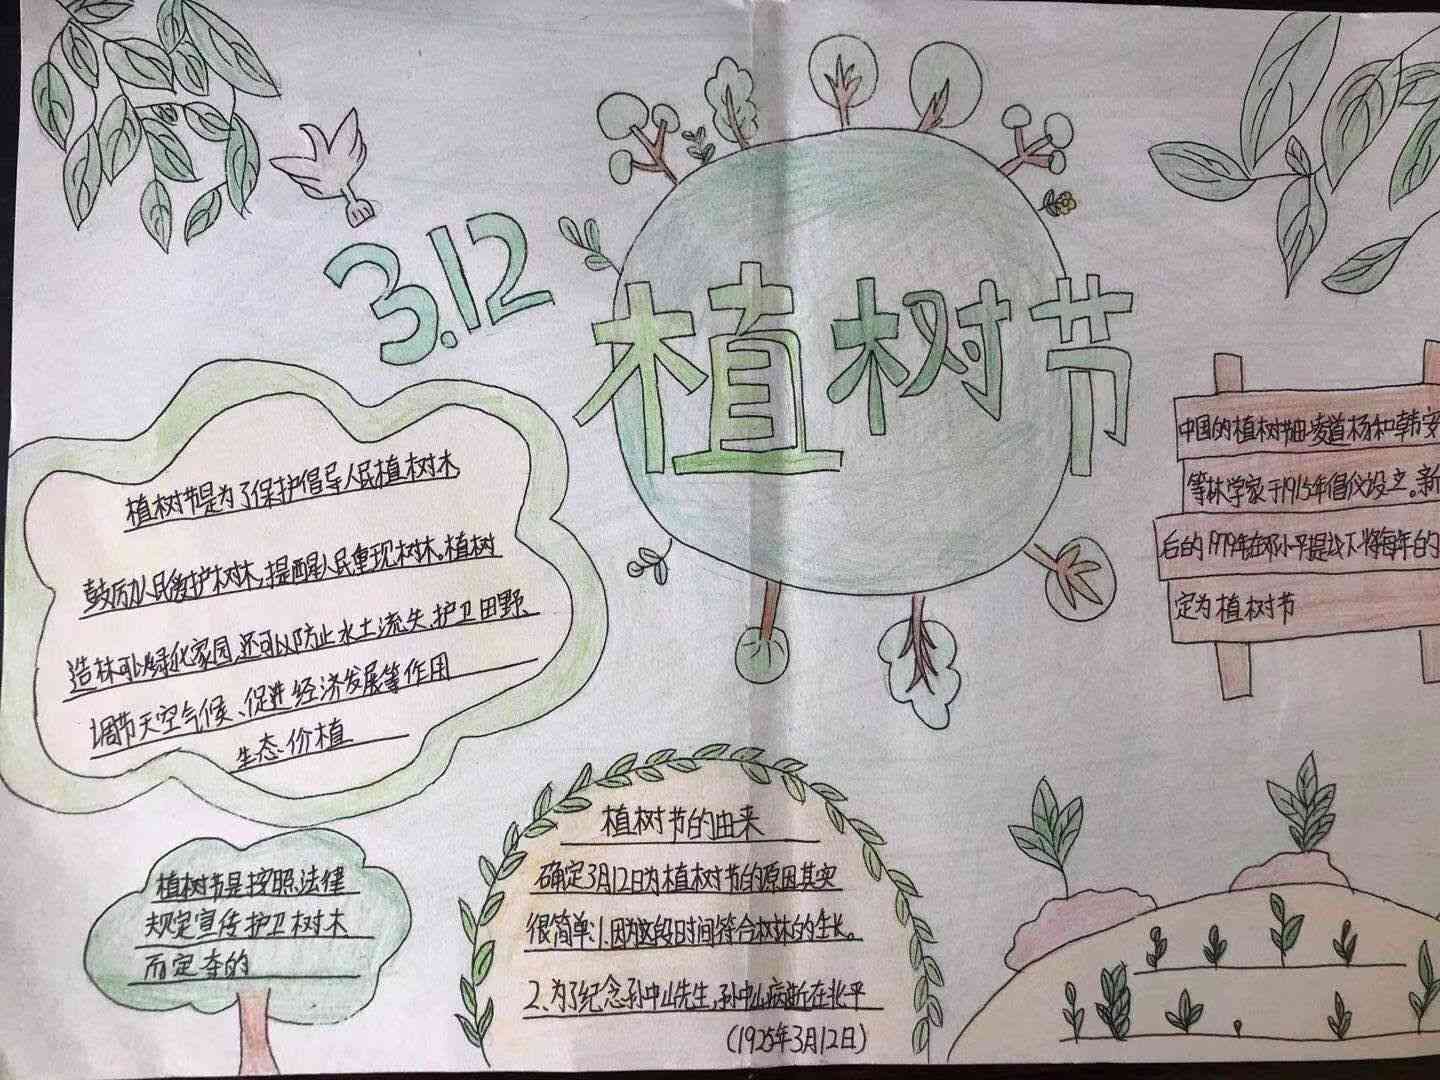 3.12
植树节
植树节是为了保护倡导人民植树木
鼓历人民爱护树木,提醒人民重现树木。植树
造林可以绿化家园,还可以防止水土流失、护卫田野、
调节天空气候、促进经济发展等作用
生态价植
中国的植树节由凌道杨和韩安
等林学家于1915年倡仪设立。新
后的1979年在邓小平提议下将每年的
定为植树节
植树节是按照法律
规定宣传护卫树木
而定夺的
植树节的由来
确定3月12日为植树节的原因其实
很简单:1.因为这段时间符合树林的生长。
2.为了纪念孙中山先生,孙中山病逝在北平
(1925年3月12日)